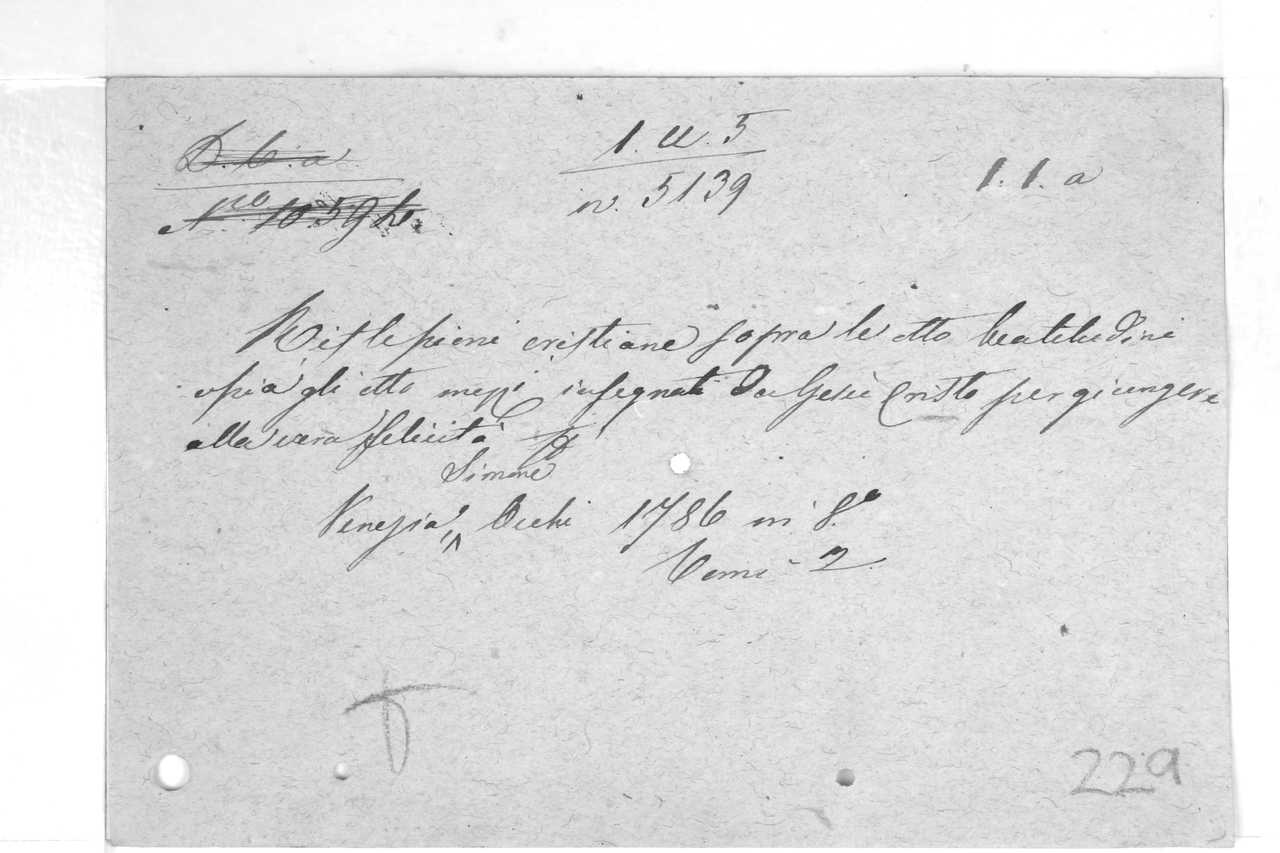 D. C. a
1. CC. 5
1. 1. a
N.ro 1059
n. 5139
Riflessioni cristiane sopra le otto beatitudini
ossia gli otto mezzi insegnati Da Gesù Cristo per giungere
alla vera felicità
Simone
Venezia, Occhi 1786 in 8.o
Tomi 2
229